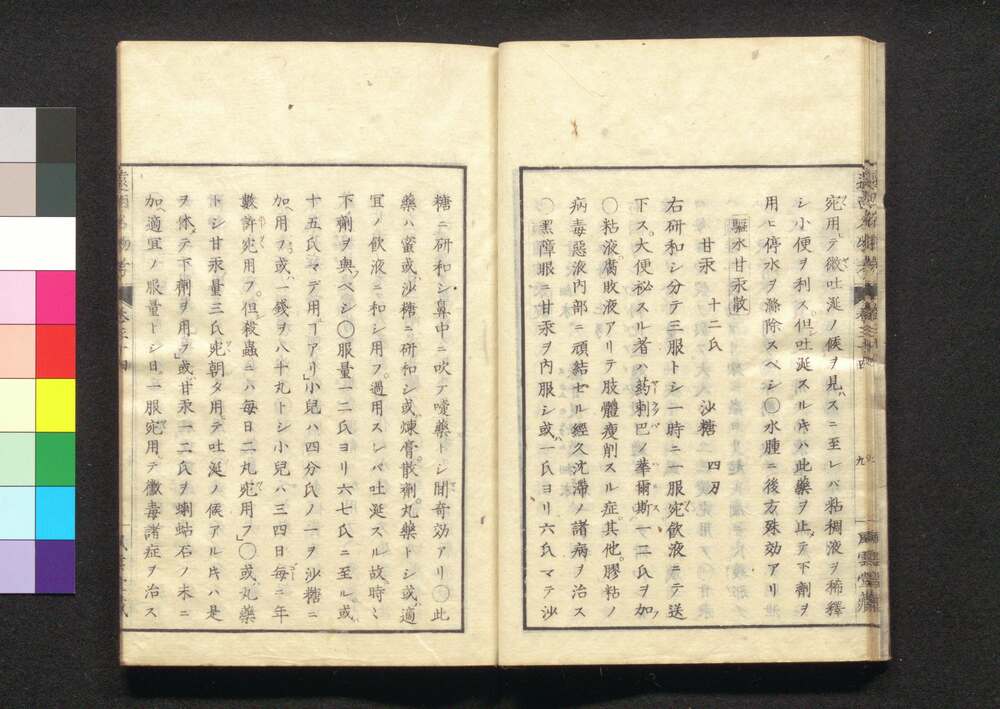 宛用テ微吐涎ノ候ヲ見スニ至レバ粘稠液ヲ稀釋
シ小便ヲ利ス但吐涎スル片ハ此藥ヲ止テ下劑ヲ
用ヒ停水ヲ滌除スベシ〇水腫ニ後方殊効アリ
驅水甘汞散
甘汞 十二氏 沙糖 四刄
右研和シ分テ三服トシ一時ニ一服宛飲液ニテ送
下ス大便秘スル者ハ葯刺巴ノ華爾斯一二氏ヲ加フ
〇粘液腐敗液アリテ肢體瘦削スル症其他膠粘ノ
病毒惡液内部ニ頑結セル經久沈滯ノ諸病ヲ治ス
〇黑障眼ニ甘汞ヲ内服シ或ハ一氏ヨリ六氏マテ沙
九
糖ニ研和シ鼻中ニ吹テ嚏藥トシ間奇効アリ〇此
藥ハ蜜或ハ沙糖ニ研和シ或ハ煉膏散劑丸藥トシ或ハ適
宜ノ飲液ニ和シ用フ過用スレバ吐涎スル故時々
下劑ヲ與フベシ〇服量一二氏ヨリ六七氏ニ至ル或ハ
十五氏マデ用ヿアリ」小兒ハ四分氏ノ一ヲ沙糖ニ
加用フ或ハ一錢ヲ八十丸トシ小兒ハ三四日毎ニ年
數許宛用フ但殺蟲ニハ毎日二丸宛用フ」〇或ハ丸藥
トシ甘汞量三氏宛朝夕用テ吐涎ノ候アル片ハ是
ヲ休テ下劑ヲ用フ」或ハ甘汞一二氏ヲ蜊蛄石ノ末ニ
加ヘ適宜ノ服量トシ日一服宛用テ黴毒諸症ヲ治ス